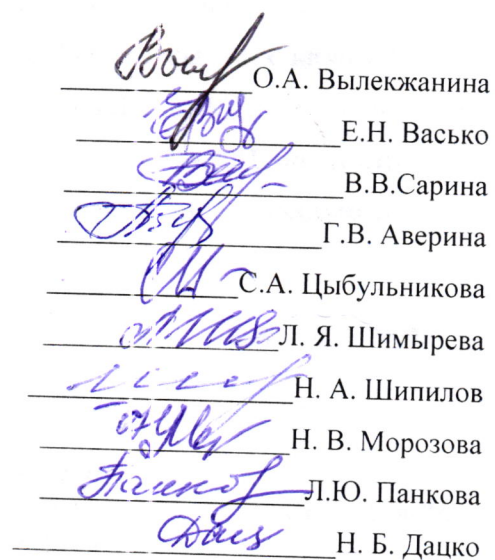 О.А. Вылекжанина
Е.Н. Васько
В.В.Сарина
Г.В. Аверина
С.А. Цыбульникова
Л. Я. Шимырева
Н. А. Шипилов
Н. В. Морозова
Л.Ю. Панкова
Н. Б. Дацко